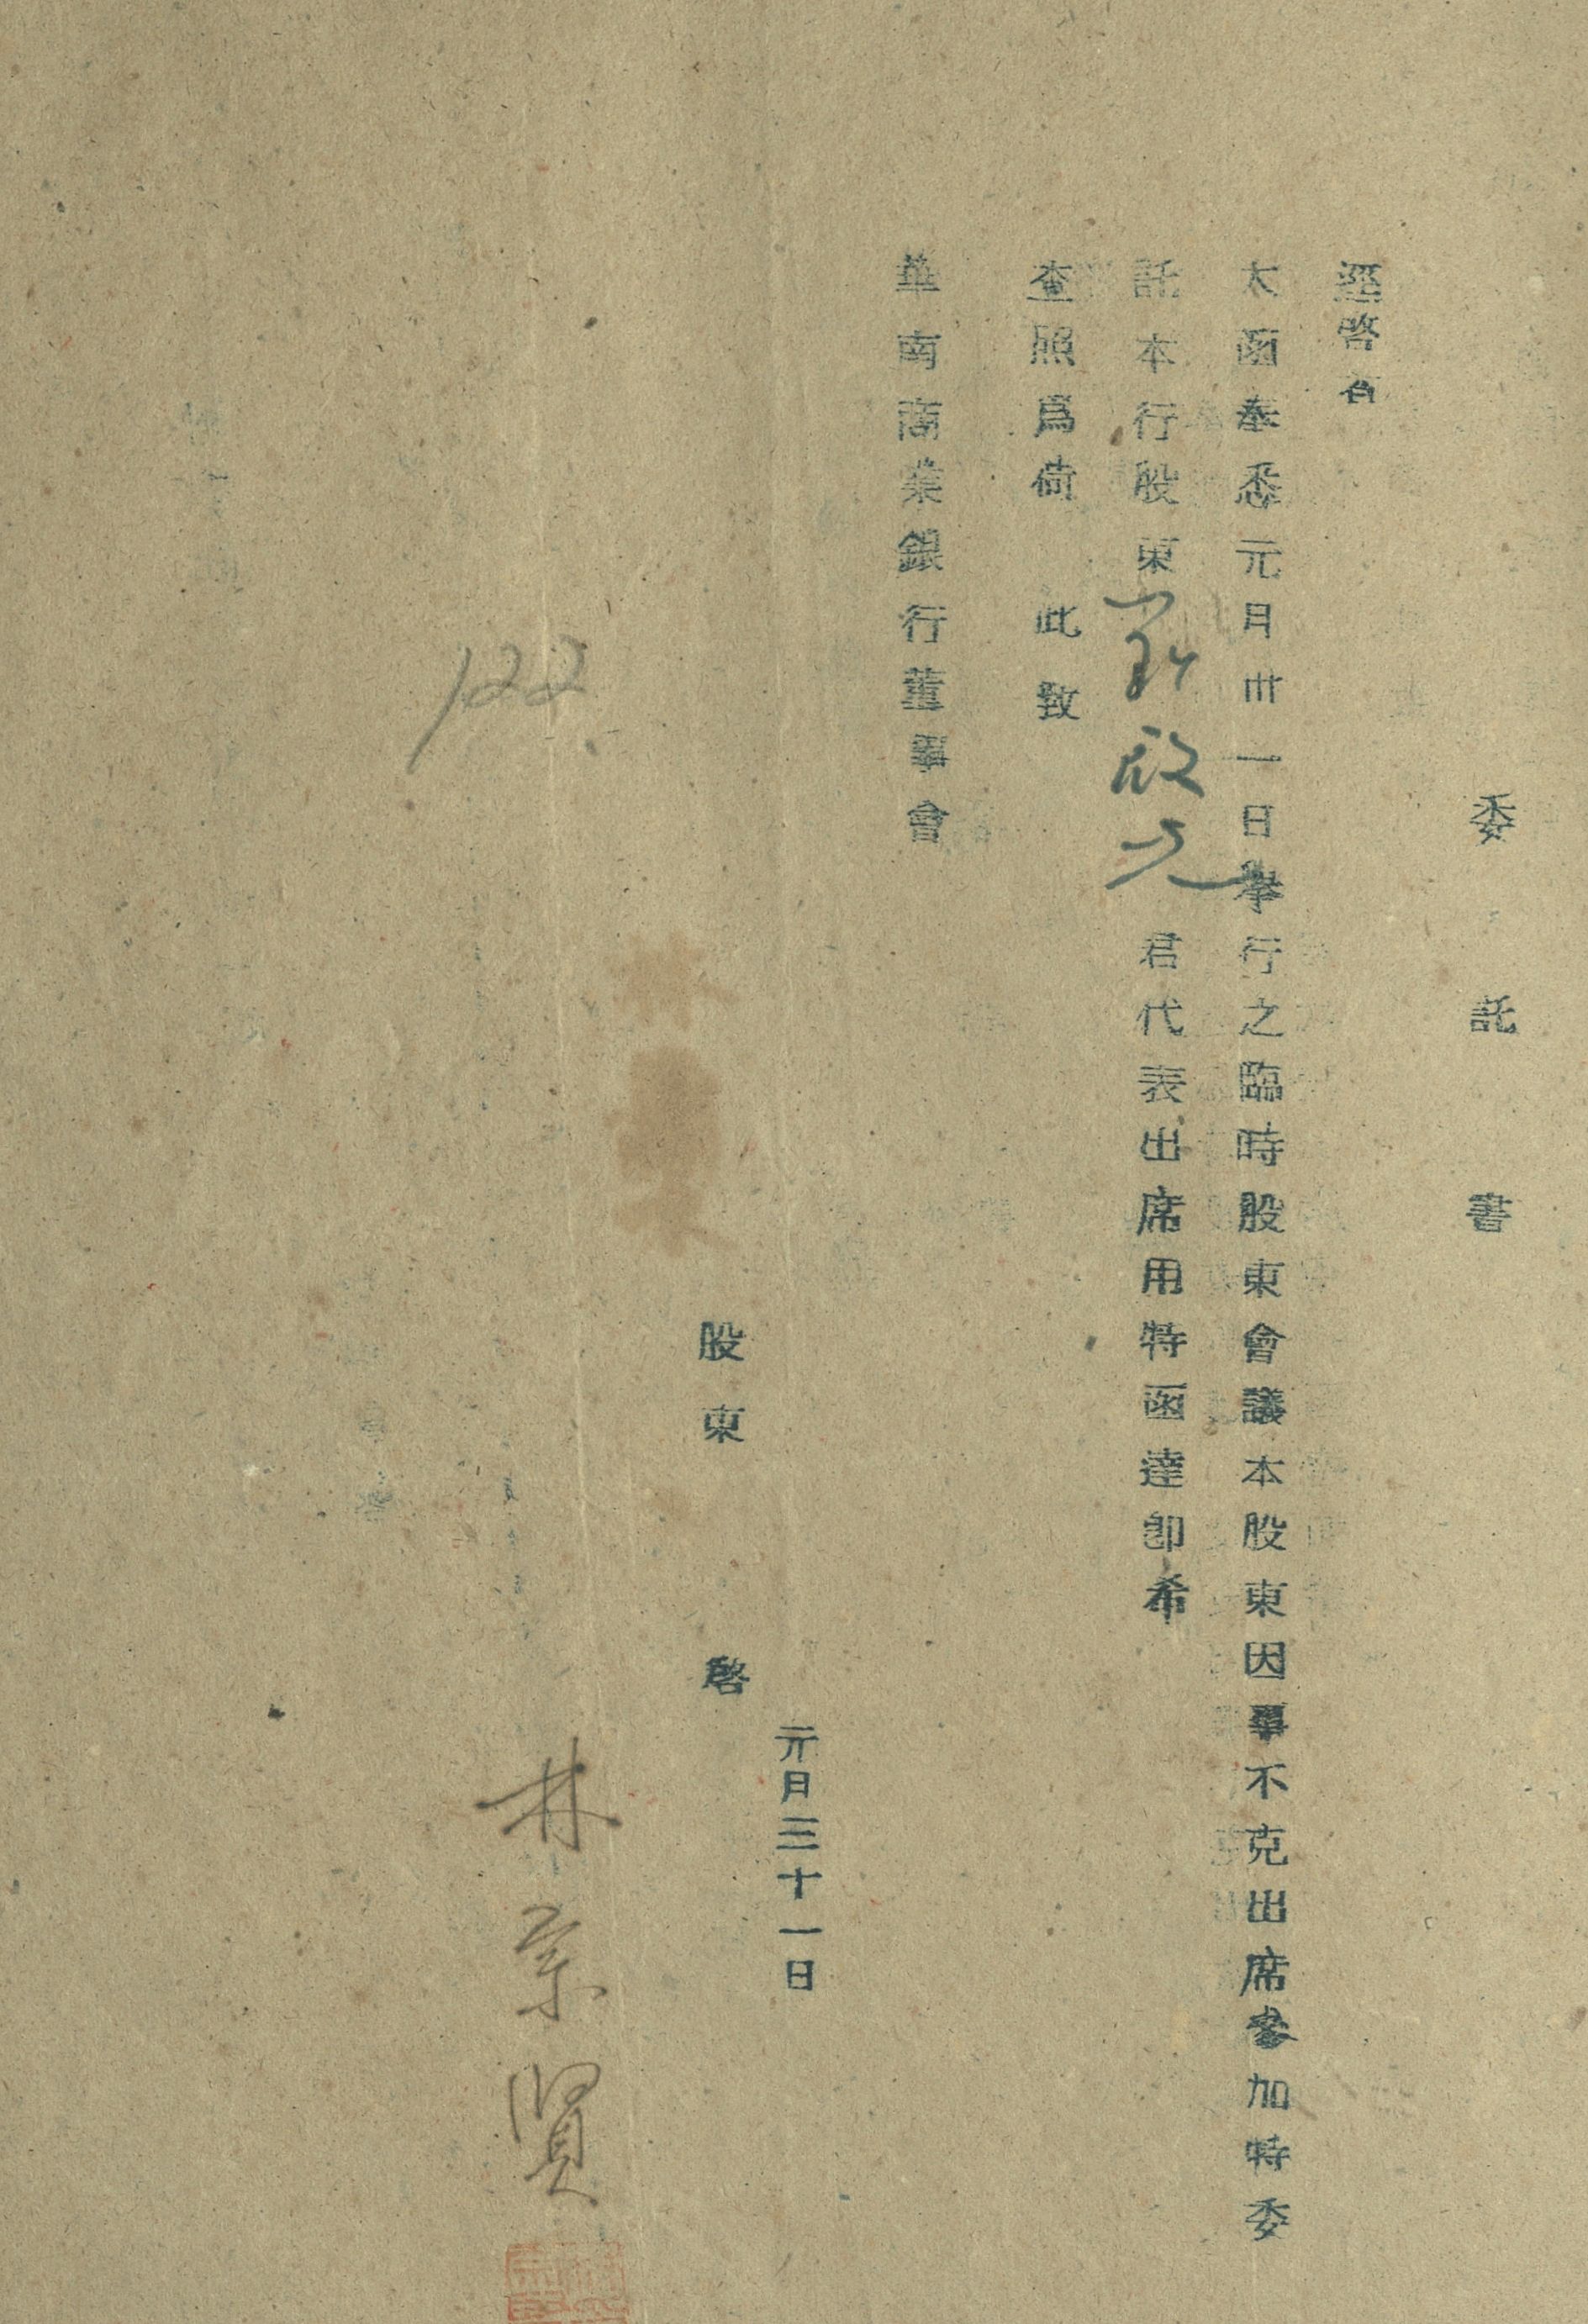 委託書
逕啓者
大函奉悉元月卅一日舉行之臨時股東會議本股東因事不克出席參加特委
託本行股東劉啟光君代表出席用特函達卽希
查照爲荷 此致
華南商業銀行董事會
元月三十一日
股東 啓
林宗賢
122